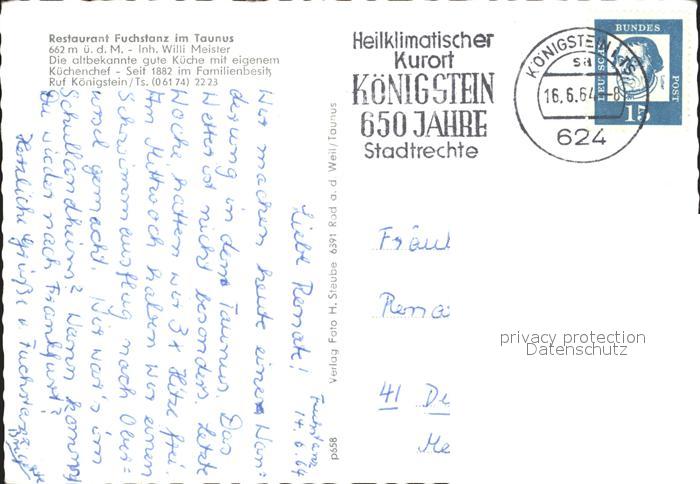 Restaurant Fuchstanz im Taunus
662 m ü. d. M. - Inh. Willi Meister
Die altbekannte gute Küche mit eigenem
Küchenchef - Seit 1882 im Familienbesitz
Ruf Königstein/Ts. (06174) 2223
Heilklimatischer
Kurort
KÖNIGSTEIN
650 JAHRE
Stadtrechte
KÖNIGSTEIN
sa
16.6.64 -8
624
DEUTSCHE
BUNDES
POST
15
Fuchstanz
14.6.64
Liebe Renate!
Wir machen heute eine Wan=
derung in dem Taunus. Das
Wetter ist nicht besonders. Letzte
Woche hatten wir 3x Hitze frei.
Am Mittwoch haben wir einen
Schwimmausflug nach Ober=
ursel gemacht. Wie war's im
Schullandheim? Wann kommst
Du wieder nach Frankfurt?
Herzliche Grüße v. Fuchstanz
Verlag Foto H. Steube 6391 Rod a. d. Weil/Taunus
p658
Fräul
Rena
41 De
Me
privacy protection
Datenschutz